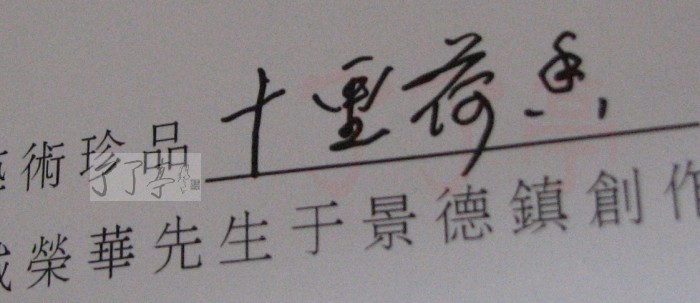 術珍品 十里荷香
榮華先生于景德鎮創作
了了亭